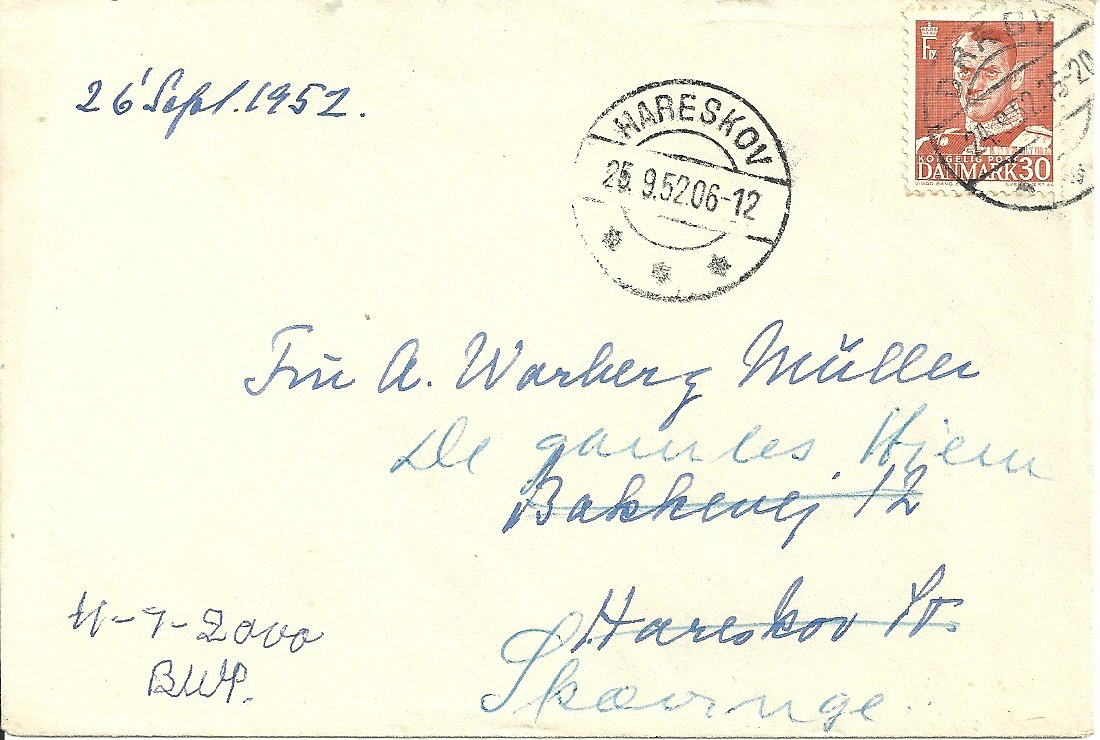 26' Sept. 1952.
HARESKOV
25.9.52.06-12
24.9.52.15-20
KONGELIG POST
DANMARK 30
Fru A. Warberg Müller
De gamles Hjem
Bakkevej 12
Hareskov St.
Skævinge
11-7-2000
BWP.